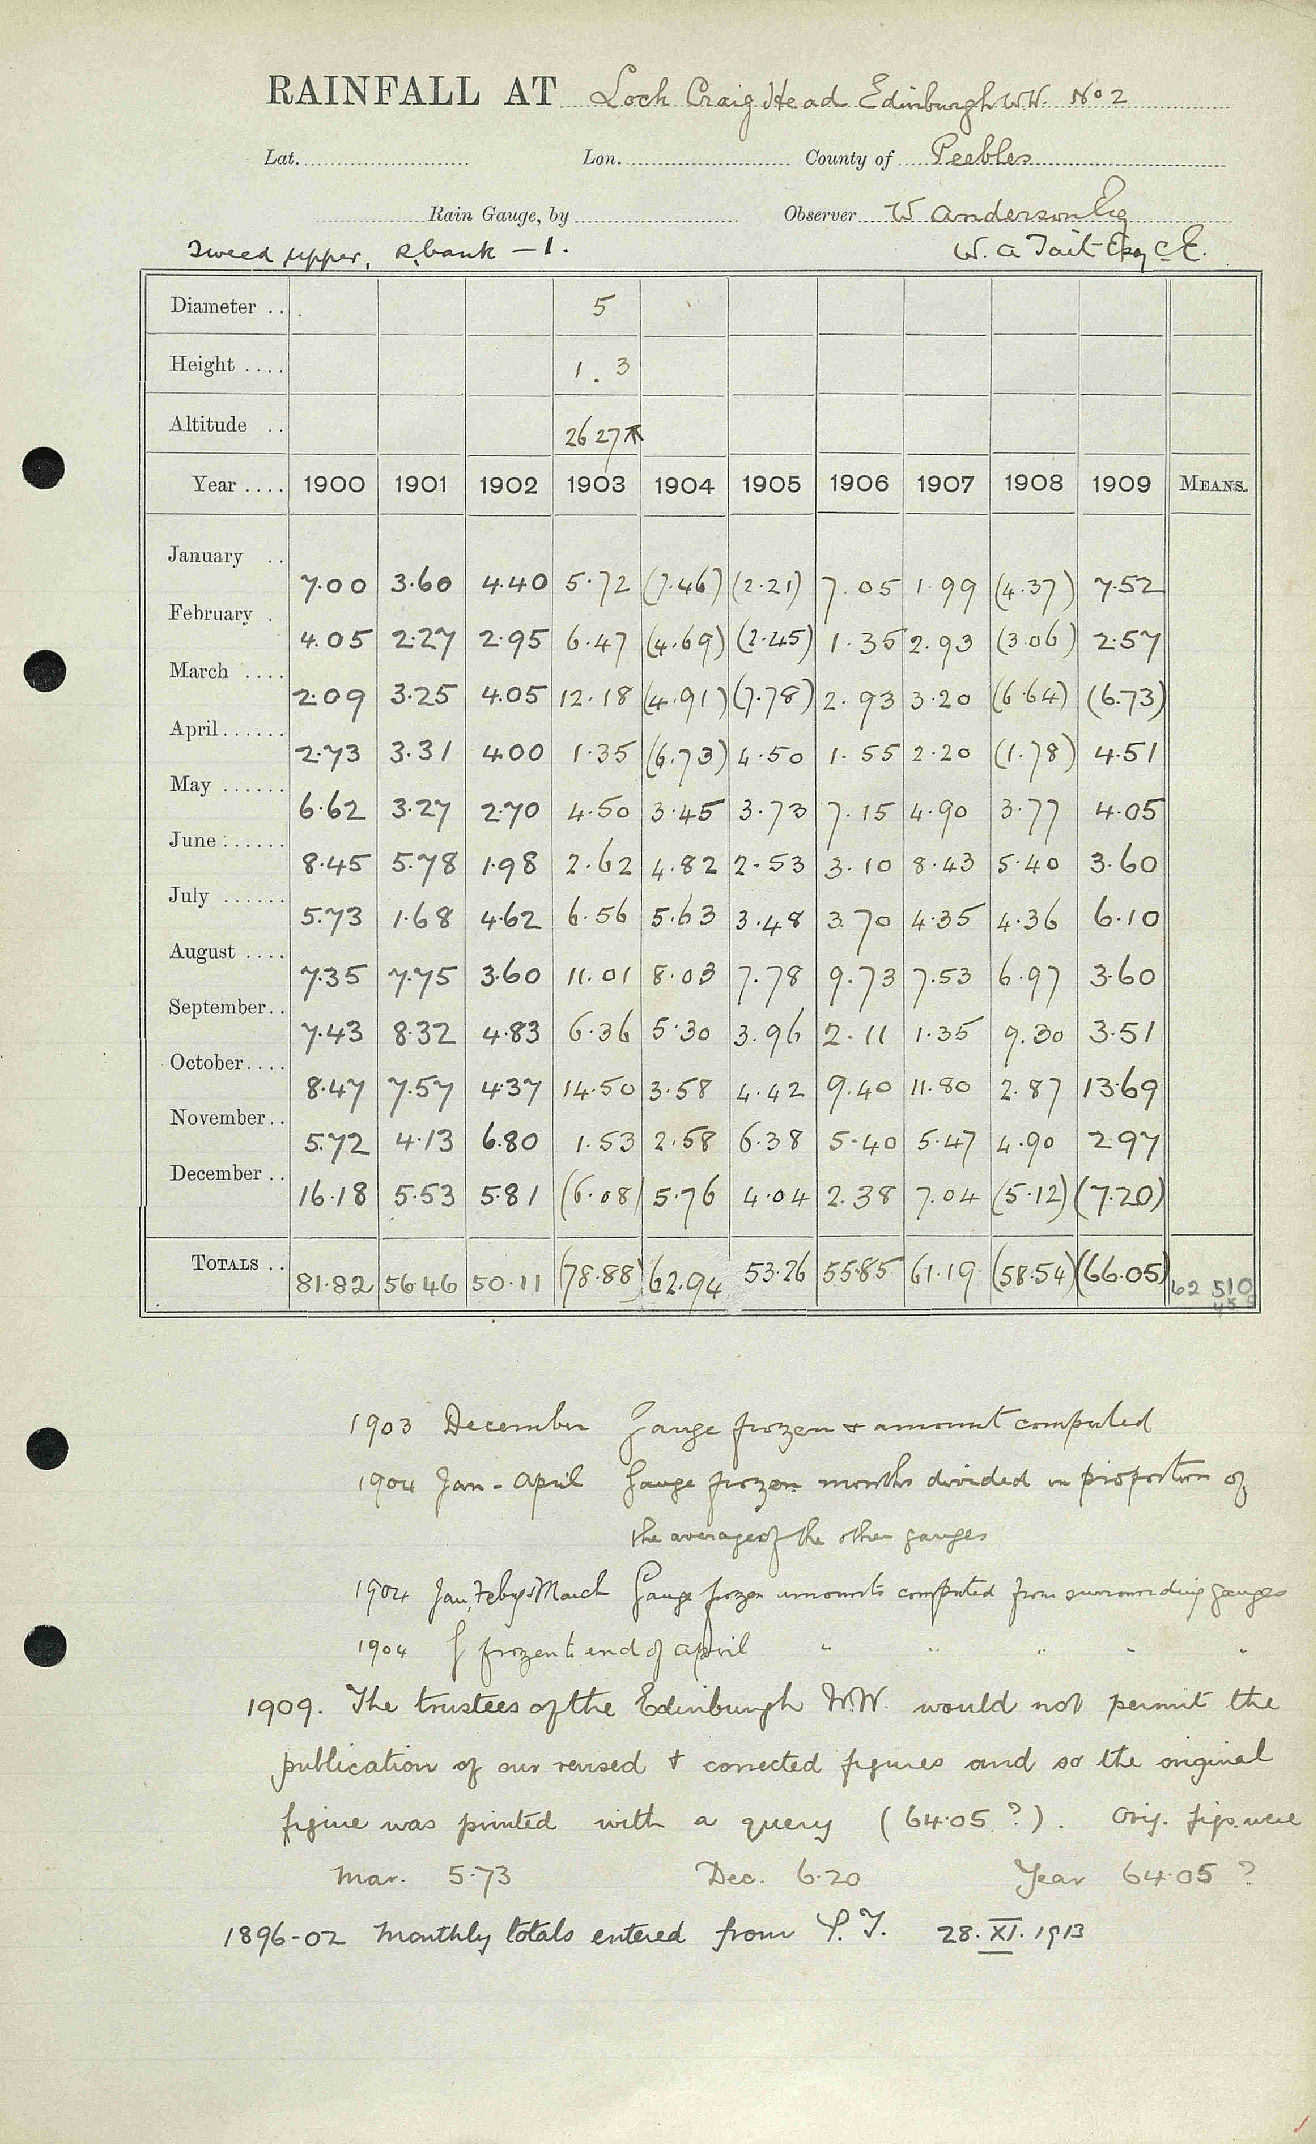 RAINFALL AT Loch Craig Head Edinburgh WW. No 2
Lat. Lon. County of Peebles
Rain Gauge, by Observer W Anderson Esq
Tweed upper, R. bank - 1. W. A Tait Esq C.E.
Diameter .. 5
Height .... 1.3
Altitude .. 2627
Year .... 1900 1901 1902 1903 1904 1905 1906 1907 1908 1909 MEANS.
January .. 7.00 3.60 4.40 5.72 (7.46) (2.21) 7.05 1.99 (4.37) 7.52
February . 4.05 2.27 2.95 6.47 (4.69) (2.45) 1.35 2.93 (3.06) 2.57
March .... 2.09 3.25 4.05 12.18 (4.91) (7.78) 2.93 3.20 (6.64) (6.73)
April...... 2.73 3.31 4.00 1.35 (6.73) 4.50 1.55 2.20 (1.78) 4.51
May ...... 6.62 3.27 2.70 4.50 3.45 3.73 7.15 4.90 3.77 4.05
June ...... 8.45 5.78 1.98 2.62 4.82 2.53 3.10 8.43 5.40 3.60
July ...... 5.73 1.68 4.62 6.56 5.63 3.48 3.70 4.35 4.36 6.10
August .... 7.35 7.75 3.60 11.01 8.03 7.78 9.73 7.53 6.97 3.60
September.. 7.43 8.32 4.83 6.36 5.30 3.96 2.11 1.35 9.30 3.51
October.... 8.47 7.57 4.37 14.50 3.58 4.42 9.40 11.80 2.87 13.69
November.. 5.72 4.13 6.80 1.53 2.58 6.38 5.40 5.47 4.90 2.97
December .. 16.18 5.53 5.81 (6.08) 5.76 4.04 2.38 7.04 (5.12) (7.20)
TOTALS .. 81.82 56.46 50.11 (78.88) 62.94 53.26 55.85 61.19 (58.54) (66.05) 62 510
1903 December Gauge frozen & amount computed
1904 Jan - April Gauge frozen months divided in proportion of
the average of the other gauges
1904 Jan, Feby & March Gauge frozen amounts computed from surrounding gauges
1904 frozen to end of April " " " " "
1909. The trustees of the Edinburgh W.W. would not permit the
publication of our revised & corrected figures and so the original
figure was printed with a query (64.05 ?). Orig. figs. were
Mar. 5.73 Dec. 6.20 Year 64.05 ?
1896-02 Monthly totals entered from 28.XI.1913